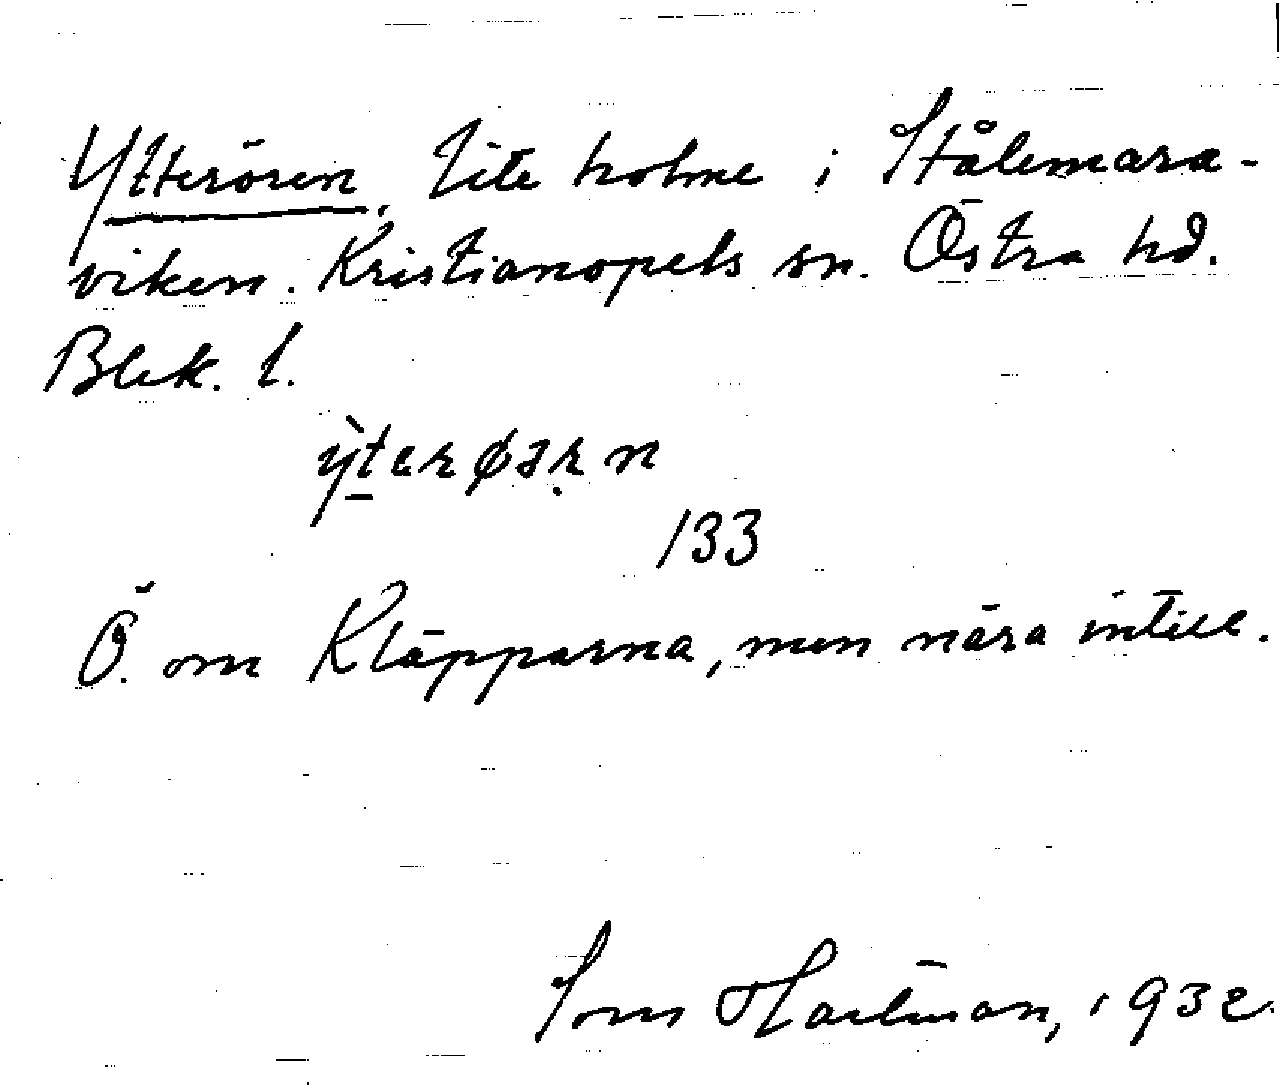 Ytterören, Lite holme i Stålemara-
viken. Kristianopels sn. Östra hd.
Blek. l.
133
Ö. om Kläpparna, men nära intill.
Hartman, 1932.